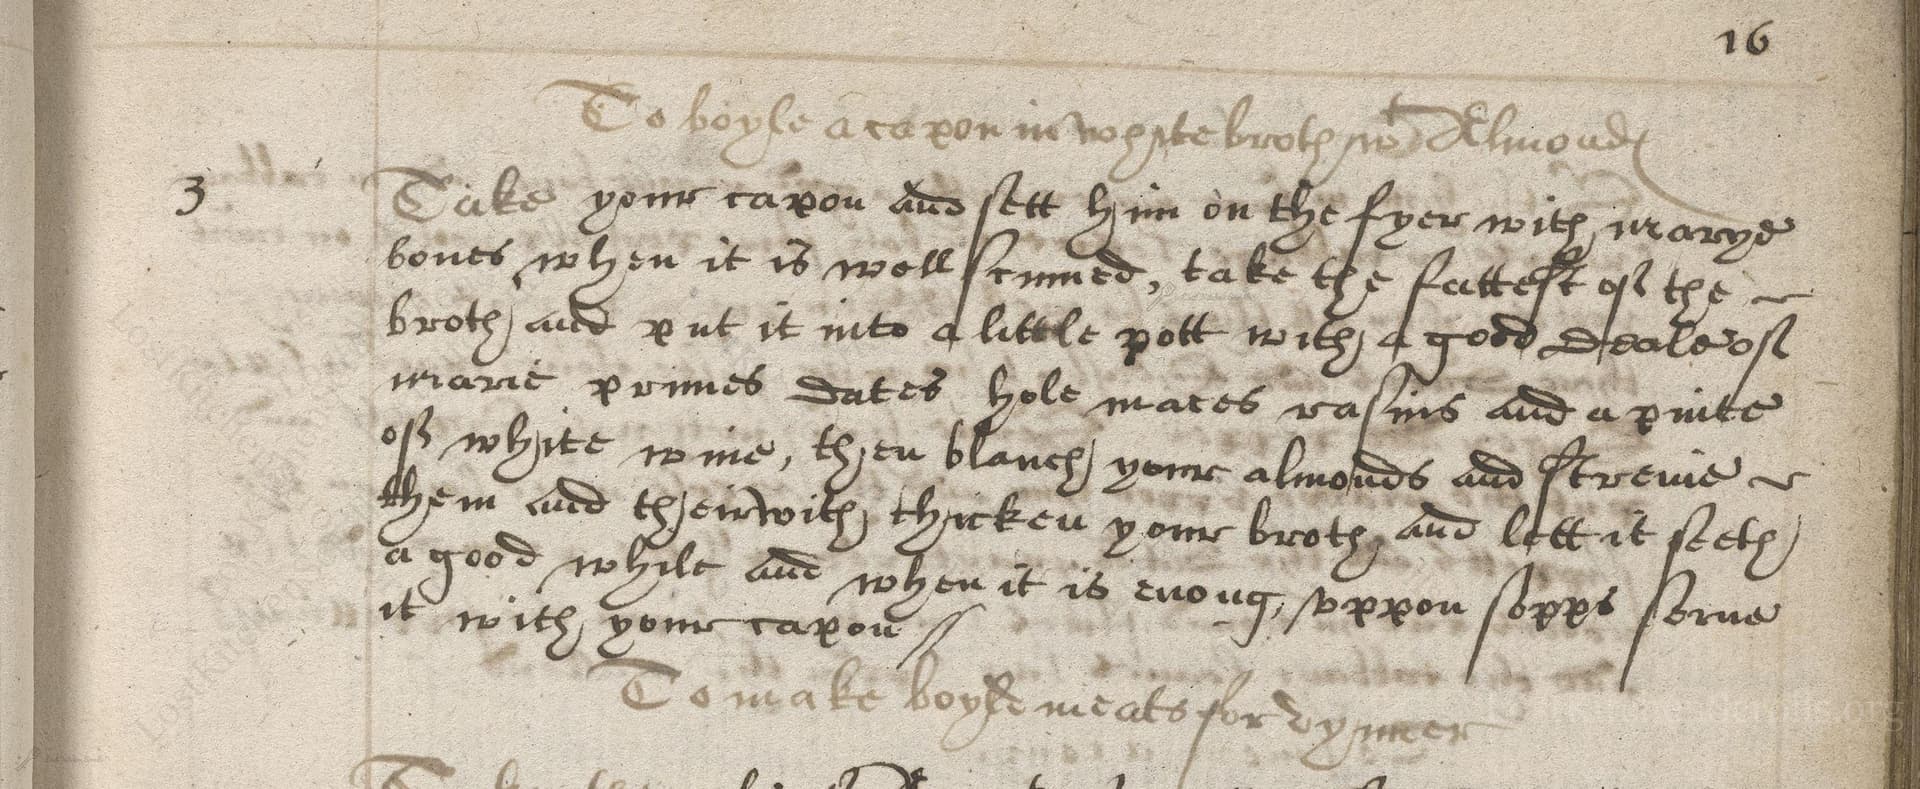 16
To boyle a capon in white broth wt Almonds
3 Take your capon and sett him on the fyer with marye
bones when it is well scumed, take the fattest of the
broth and put it into a little pott with a good deale of
marie prunes dates hole maces rasins and a pinte
of white wine, then blanch your almonds and streine
them and theirwith thicken your broth and lett it seeth
a good while and when it is enoug, uppon sopps serve
it with your capon
To make boyld meats for dynner